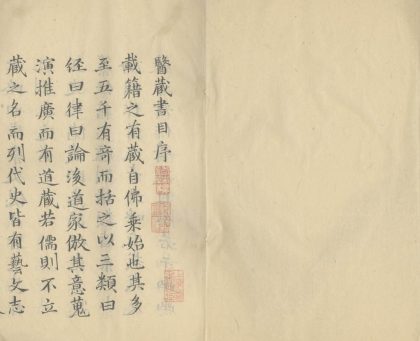 醫藏書目序
載籍之有藏自佛乘始也其多
至五千有奇而括之以三類曰
經曰律曰論後道家倣其意蒐
演推廣而有道藏若儒則不立
藏之名而列代史皆有藝文志